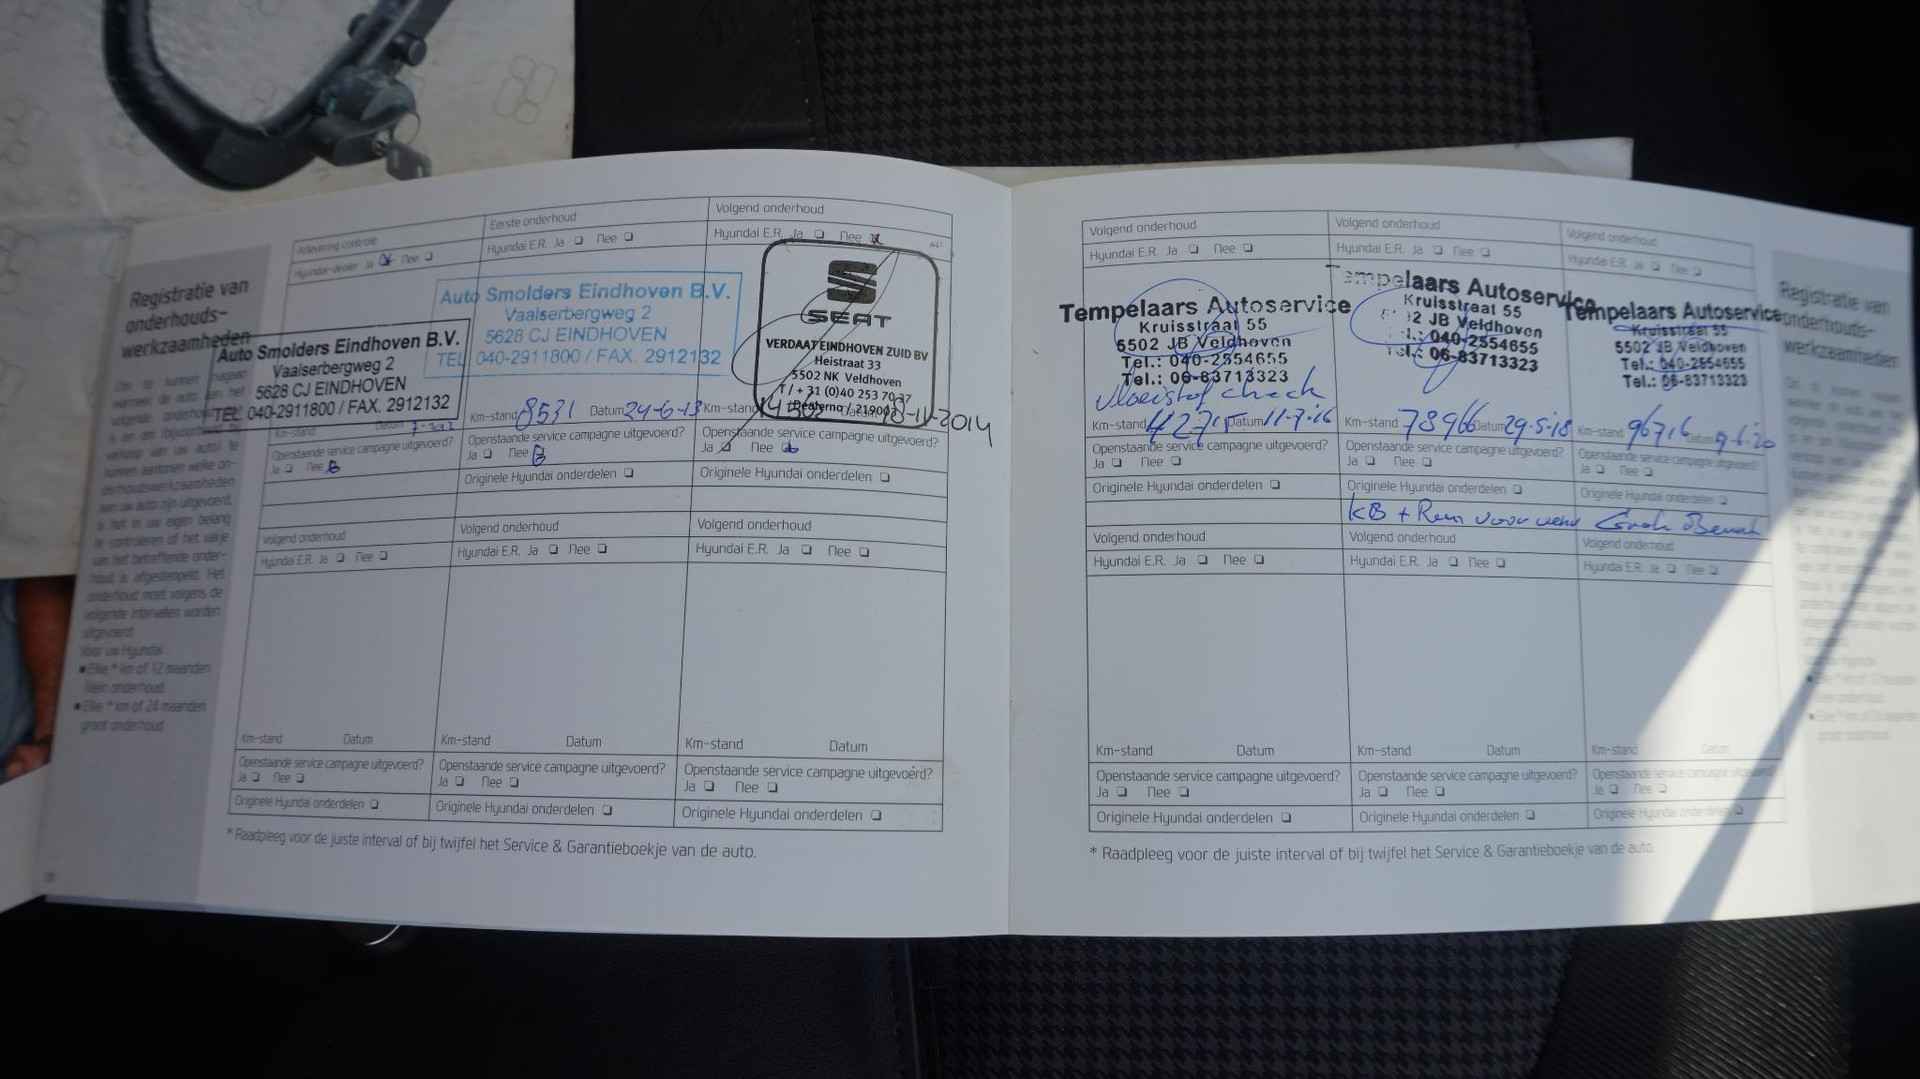 Registratie van
onderhouds-
werkzaamheden
Om te kunnen nagaan
wanneer de auto aan het
volgende onderhoud
is en om
verkoop van uw auto te
kunnen aantonen welke on-
derhoudswerkzaamheden
aan uw auto zijn uitgevoerd,
is het in uw eigen belang
te controleren of het vakje
van het betreffende onder-
houd is afgestempeld. Het
onderhoud moet volgens de
volgende intervallen worden
uitgevoerd.
Voor uw Hyundai
■ Elke * km of 12 maanden
klein onderhoud.
■ Elke * km of 24 maanden
groot onderhoud.
Aflevering controle
Hyundai-dealer Ja Nee
Auto Smolders Eindhoven B.V.
Vaalserbergweg 2
5628 CJ EINDHOVEN
TEL. 040-2911800 / FAX. 2912132
Km-stand Datum
Openstaande service campagne uitgevoerd?
Ja Nee
Eerste onderhoud
Hyundai E.R. Ja Nee
Auto Smolders Eindhoven B.V.
Vaalserbergweg 2
5628 CJ EINDHOVEN
TEL. 040-2911800 / FAX. 2912132
Km-stand 8531 Datum 24-6-13
Openstaande service campagne uitgevoerd?
Ja Nee
Originele Hyundai onderdelen
Volgend onderhoud
Hyundai E.R. Ja Nee
SEAT
VERDAAT EINDHOVEN ZUID BV
Heistraat 33
5502 NK Veldhoven
T / + 31 (0)40 253 70 37
Dealerno / 219003
Km-stand 18-11-2014
Openstaande service campagne uitgevoerd?
Ja Nee
Originele Hyundai onderdelen
Volgend onderhoud
Hyundai E.R. Ja Nee
Km-stand Datum
Openstaande service campagne uitgevoerd?
Ja Nee
Originele Hyundai onderdelen
Volgend onderhoud
Hyundai E.R. Ja Nee
Km-stand Datum
Openstaande service campagne uitgevoerd?
Ja Nee
Originele Hyundai onderdelen
Volgend onderhoud
Hyundai E.R. Ja Nee
Km-stand Datum
Openstaande service campagne uitgevoerd?
Ja Nee
Originele Hyundai onderdelen
* Raadpleeg voor de juiste interval of bij twijfel het Service & Garantieboekje van de auto.
Volgend onderhoud
Hyundai E.R. Ja Nee
Tempelaars Autoservice
Kruisstraat 55
5502 JB Veldhoven
Tel.: 040-2554655
Tel.: 06-83713323
vloeistof check
Km-stand 42715 Datum 11-7-16
Openstaande service campagne uitgevoerd?
Ja Nee
Originele Hyundai onderdelen
Volgend onderhoud
Hyundai E.R. Ja Nee
Tempelaars Autoservice
Kruisstraat 55
JB Veldhoven
040-2554655
06-83713323
Km-stand 78966 Datum 29-5-18
Openstaande service campagne uitgevoerd?
Ja Nee
Originele Hyundai onderdelen
KB + Rem voor
Volgend onderhoud
Hyundai E.R. Ja Nee
Tempelaars Autoservice
Kruisstraat 55
5502 JB Veldhoven
Tel.: 040-2554655
Tel.: 06-83713323
Km-stand 96716 Datum 9-6-20
Openstaande service campagne uitgevoerd?
Ja Nee
Originele Hyundai onderdelen
Volgend onderhoud
Hyundai E.R. Ja Nee
Km-stand Datum
Openstaande service campagne uitgevoerd?
Ja Nee
Originele Hyundai onderdelen
Volgend onderhoud
Hyundai E.R. Ja Nee
Km-stand Datum
Openstaande service campagne uitgevoerd?
Ja Nee
Originele Hyundai onderdelen
Volgend onderhoud
Hyundai E.R. Ja Nee
Km-stand Datum
Openstaande service campagne uitgevoerd?
Ja Nee
Originele Hyundai onderdelen
* Raadpleeg voor de juiste interval of bij twijfel het Service & Garantieboekje van de auto.
Registratie van
onderhouds-
werkzaamheden